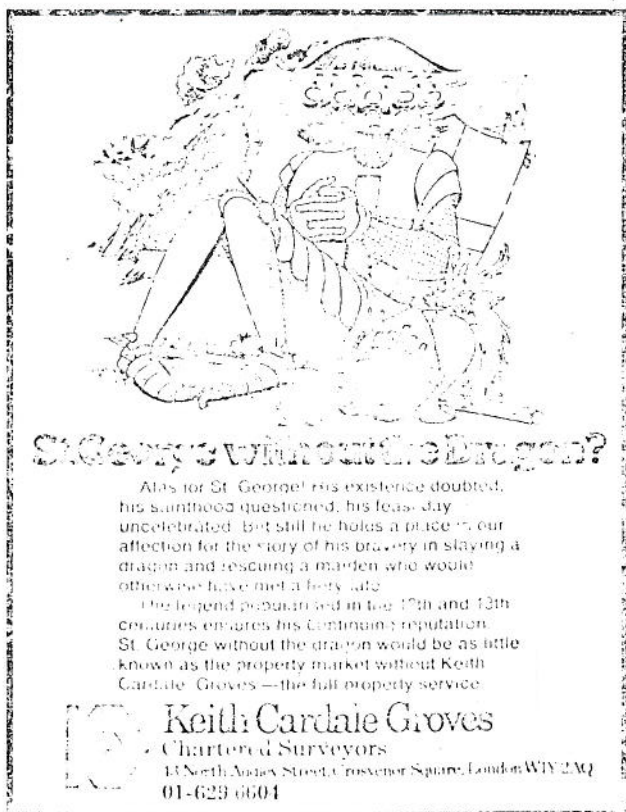 St. George without the Dragon?
Alas for St. George! His existence doubted,
his sainthood questioned, his feast day
uncelebrated. But still he holds a place in our
affection for the story of his bravery in slaying a
dragon and rescuing a maiden who would
otherwise have met a fiery fate.
The legend popularised in the 12th and 13th
centuries ensures his continuing reputation.
St. George without the dragon would be as little
known as the property market without Keith
Cardale, Groves — the full property service.
Keith Cardale Groves
Chartered Surveyors
43 North Audley Street, Grosvenor Square, London W1Y 2AQ
01-629 6604